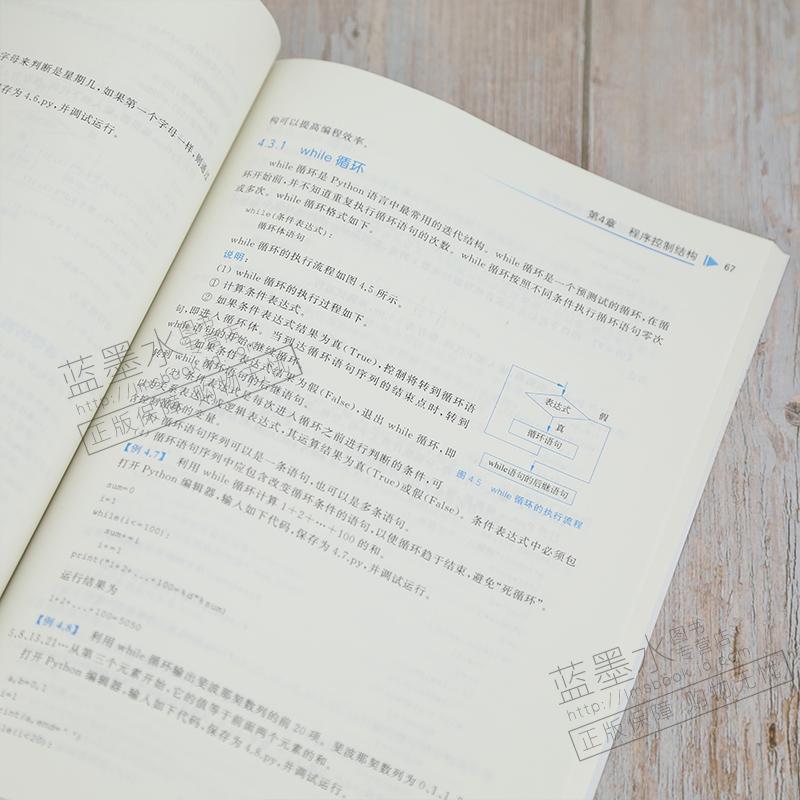 字母来判断是星期几,如果第一个字母一样,则通过
存为4.6.py,并调试运行。
第4章 程序控制结构 67
构可以提高编程效率。
4.3.1 while 循环
while 循环是 Python 语言中最常用的迭代结构。while 循环是一个预测试的循环,在循
环开始前,并不知道重复执行循环语句的次数。while 循环按照不同条件执行循环语句零次
或多次。while 循环格式如下。
while(条件表达式):
循环体语句
while 循环的执行流程如图 4.5 所示。
说明:
(1) while 循环的执行过程如下。
① 计算条件表达式。
② 如果条件表达式结果为真(True),控制将转到循环语
句,即进入循环体。当到达循环语句序列的结束点时,转到
while 语句的开始,继续循环。
如果条件表达式结果为假(False),退出 while 循环,即
转到 while 循环语句的后继语句。
(2) 条件表达式是每次进入循环之前进行判断的条件,可
以为关系表达式或逻辑表达式,其运算结果为真(True)或假(False)。条件表达式中必须包
含控制循环的变量。
(3) 循环语句序列可以是一条语句,也可以是多条语句。
(4) 循环语句序列中应包含改变循环条件的语句,以使循环趋于结束,避免“死循环”。
表达式
假
真
循环语句
while语句的后继语句
图 4.5 while 循环的执行流程
【例 4.7】 利用 while 循环计算 1+2+…+100 的和。
打开 Python 编辑器,输入如下代码,保存为 4.7.py,并调试运行。
sum=0
i=1
while(i<=100):
sum+=i
i+=1
print("1+2+...+100=%d"%sum)
运行结果为
1+2+...+100=5050
【例 4.8】 利用 while 循环输出斐波那契数列的前 20 项。斐波那契数列为 0,1,1,2
5,8,13,21…从第三个元素开始,它的值等于前面两个元素的和。
打开 Python 编辑器,输入如下代码,保存为 4.8.py,并调试运行。
a,b=0,1
i=1
print(a,end=" ")
while(i<20):
蓝墨水
http://
正版保障 购物无忧
蓝墨水 图书专营店
http://lmsbook.
正版保障 购物无忧